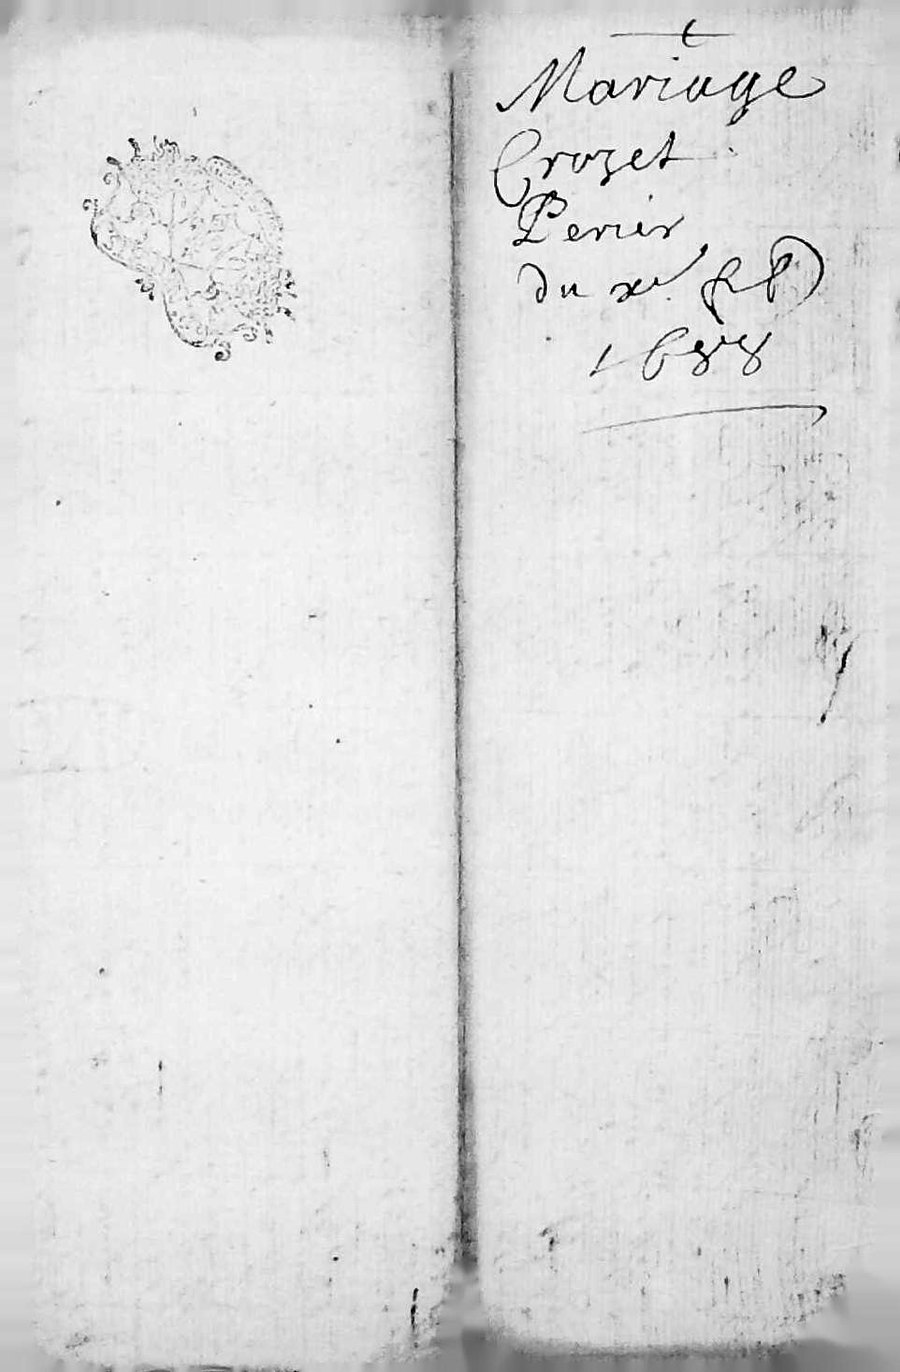 t
Mariage
Crozet
Perier
du xe feb
1688